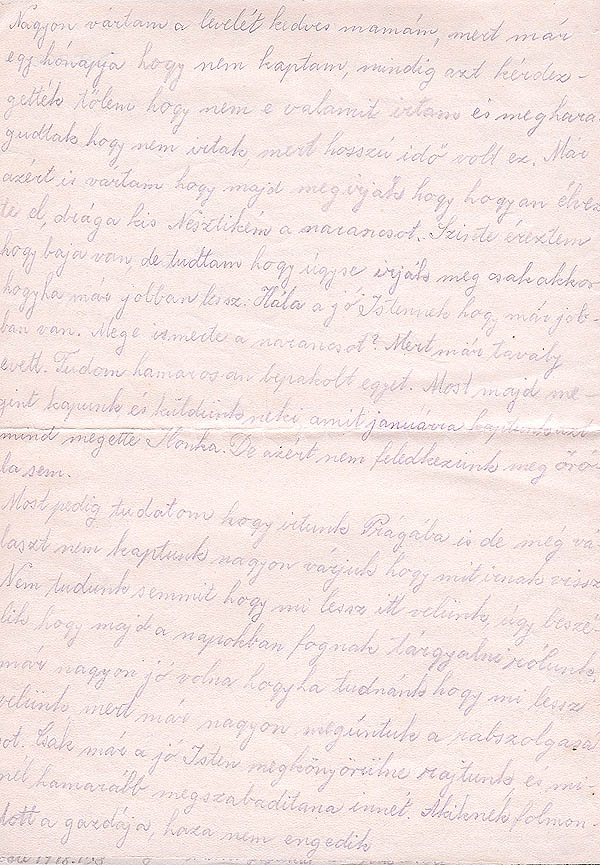 Nagyon vártam a levelét kedves mamám, mert már
egy hónapja hogy nem kaptam, mindig azt kérdez-
gették tőlem hogy nem e valamit irtam és meghara-
gudtak hogy nem irtak, mert hosszú idő volt ez. Már
azért is vártam hogy majd megirják hogy hogyan élvez
te el, drága kis Nesztikém a narancsot. Szinte éreztem
hogy baja van, de tudtam hogy úgyse irják meg csak akkor
hogyha már jobban lesz. Hála a jó Istennek hogy már job-
ban van. Mege ismerte a narancsot? Mert már tavaly
evett. Tudom hamarosan bepakolt egyet. Most majd me-
gint kapunk és küldünk neki, amit januárra kaptunk azt
mind megette Ilonka. De azért nem feledkezünk meg őró-
la sem.
Most pedig tudatom hogy irtunk Prágába is de még vá-
laszt nem kaptunk nagyon várjuk hogy mit irnak vissz
Nem tudunk semmit hogy mi lessz itt velünk, úgy beszé-
lik hogy majd a napokban fognak tárgyalni rólunk,
már nagyon jó volna hogyha tudnánk hogy mi lessz
velünk mert már nagyon megúntuk a rabszolgasá
got. Csak már a jó Isten megkönyörülne rajtunk, és mi-
nél hamarább megszabaditana innét. Akiknek folmon-
dott a gazdája, haza nem engedik